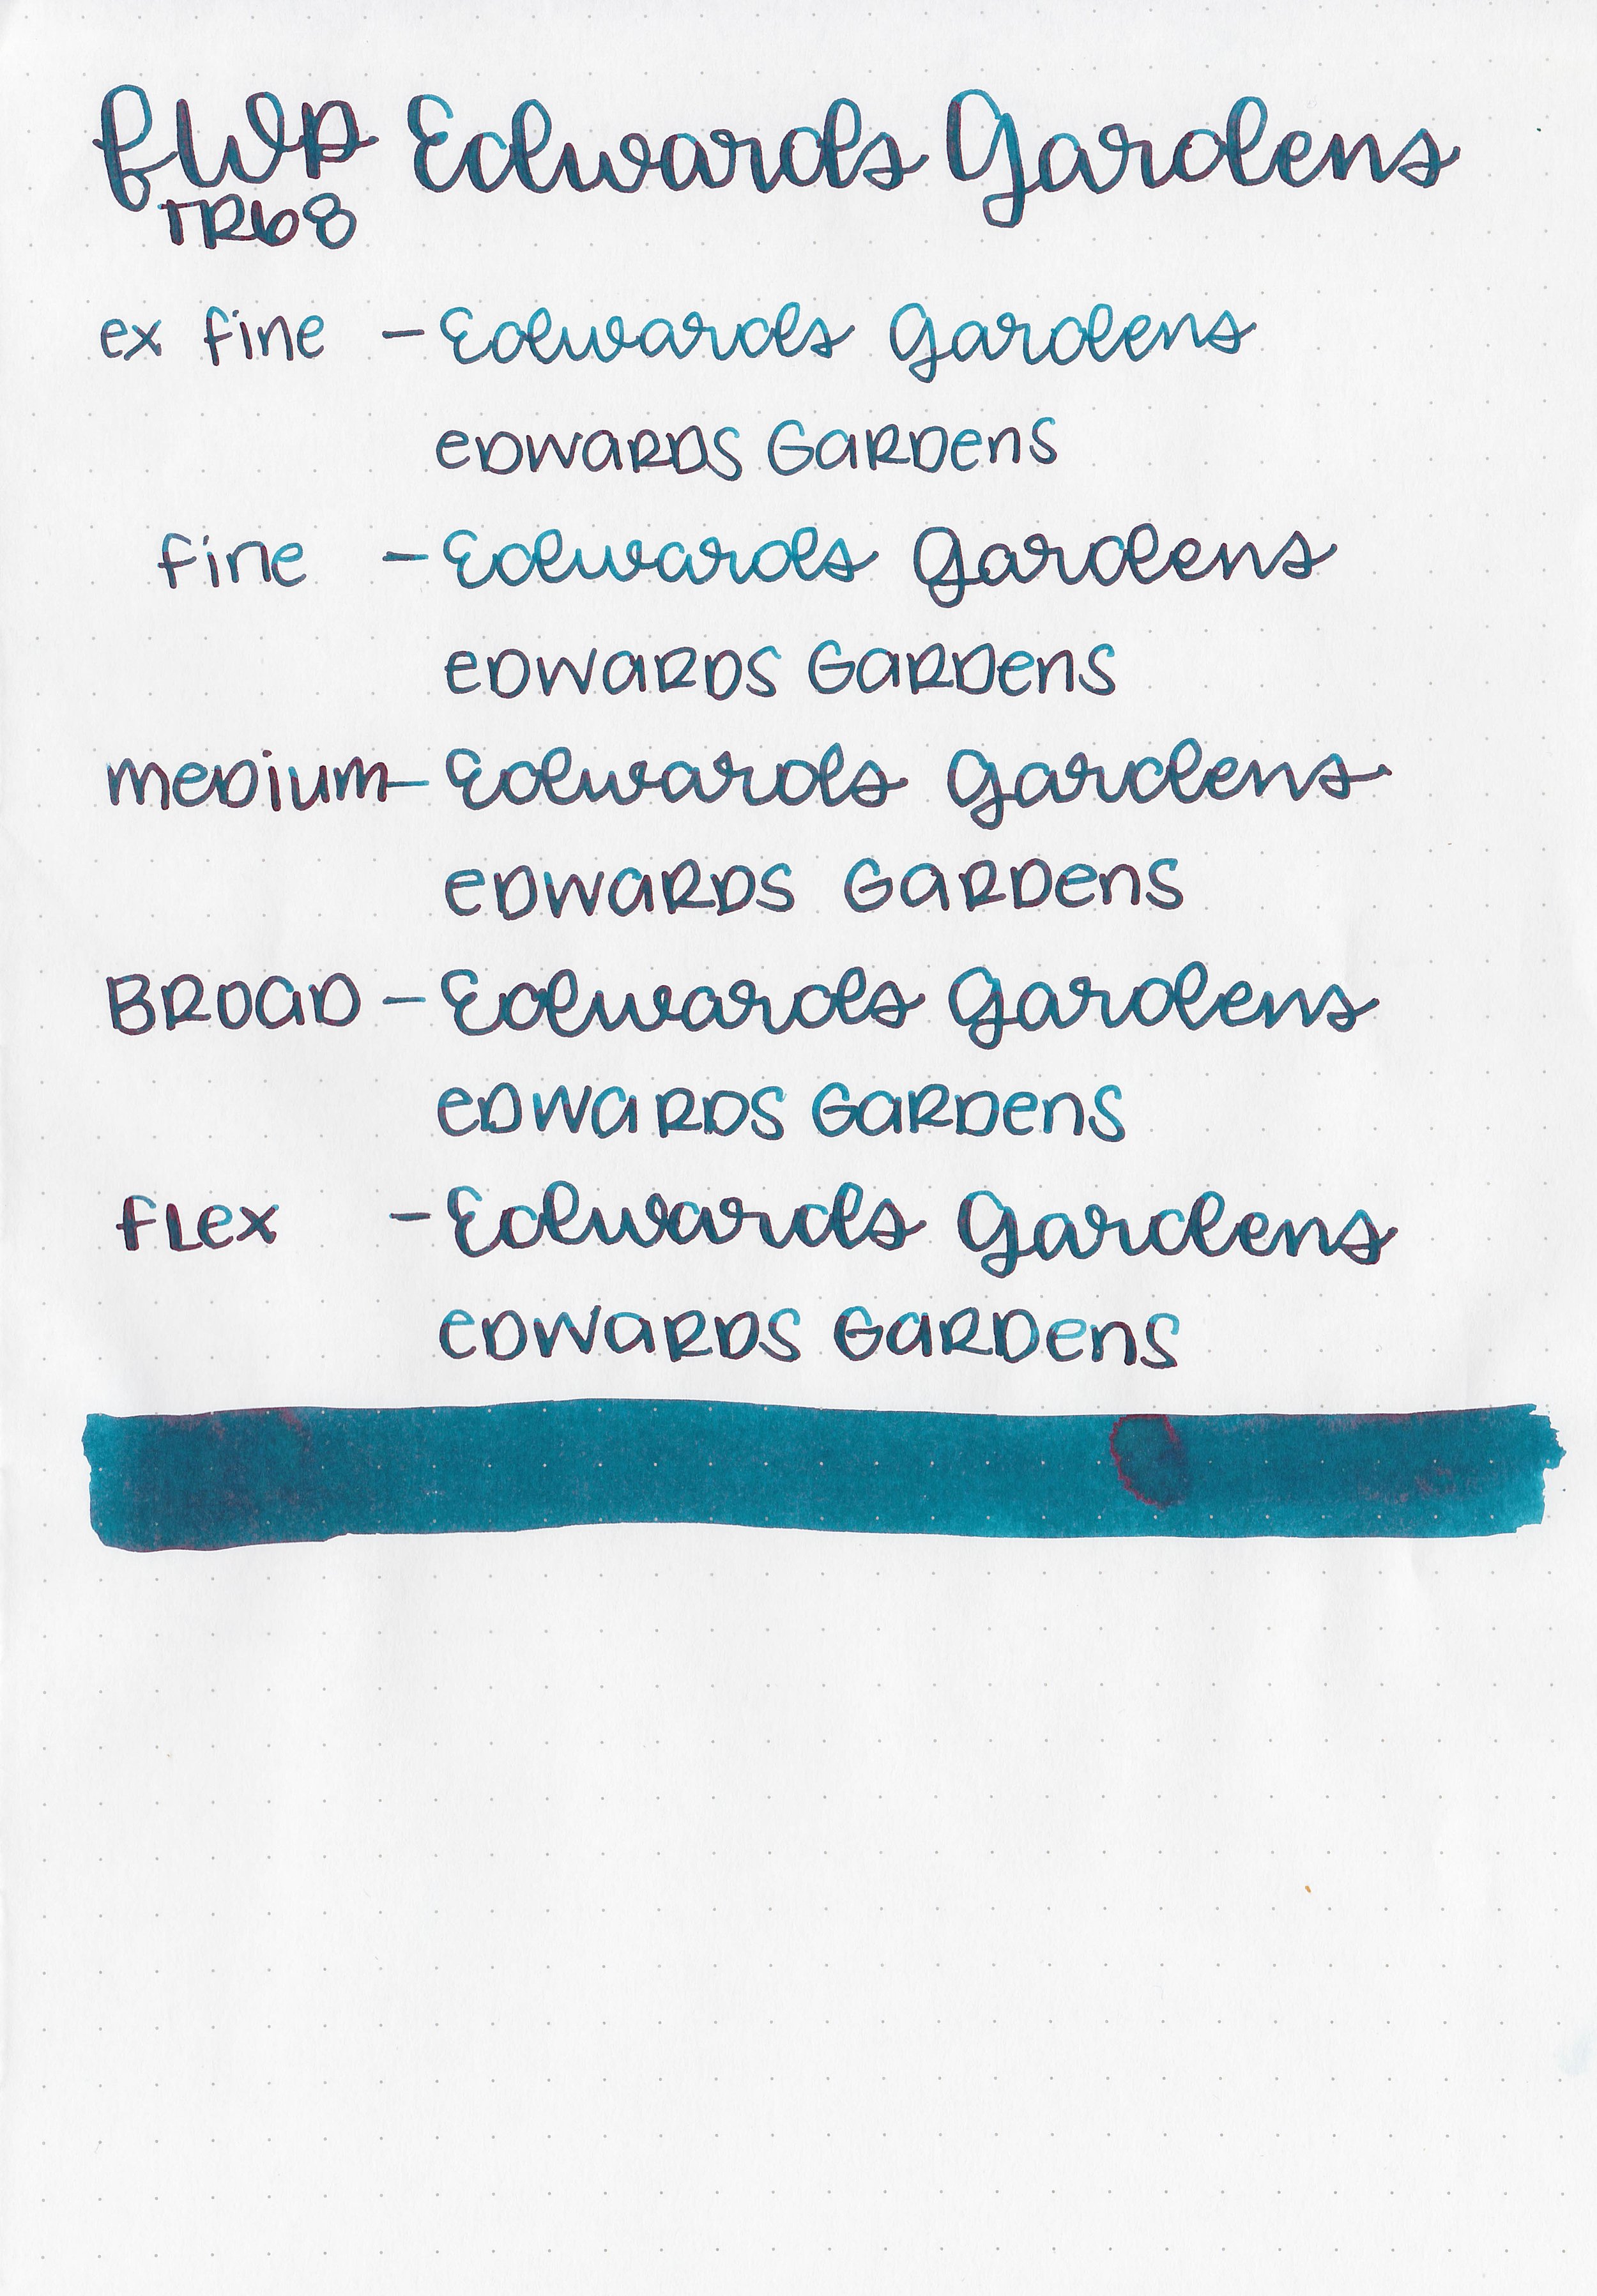 FWP Edwards Gardens
TR68
ex fine - Edwards Gardens
eDWaRDS GaRDenS
fine - Edwards Gardens
eDWaRDS GaRDenS
meDium - Edwards Gardens
eDWaRDS GaRDenS
BROaD - Edwards Gardens
eDWaRDS GaRDenS
fLex - Edwards Gardens
eDWaRDS GaRDenS